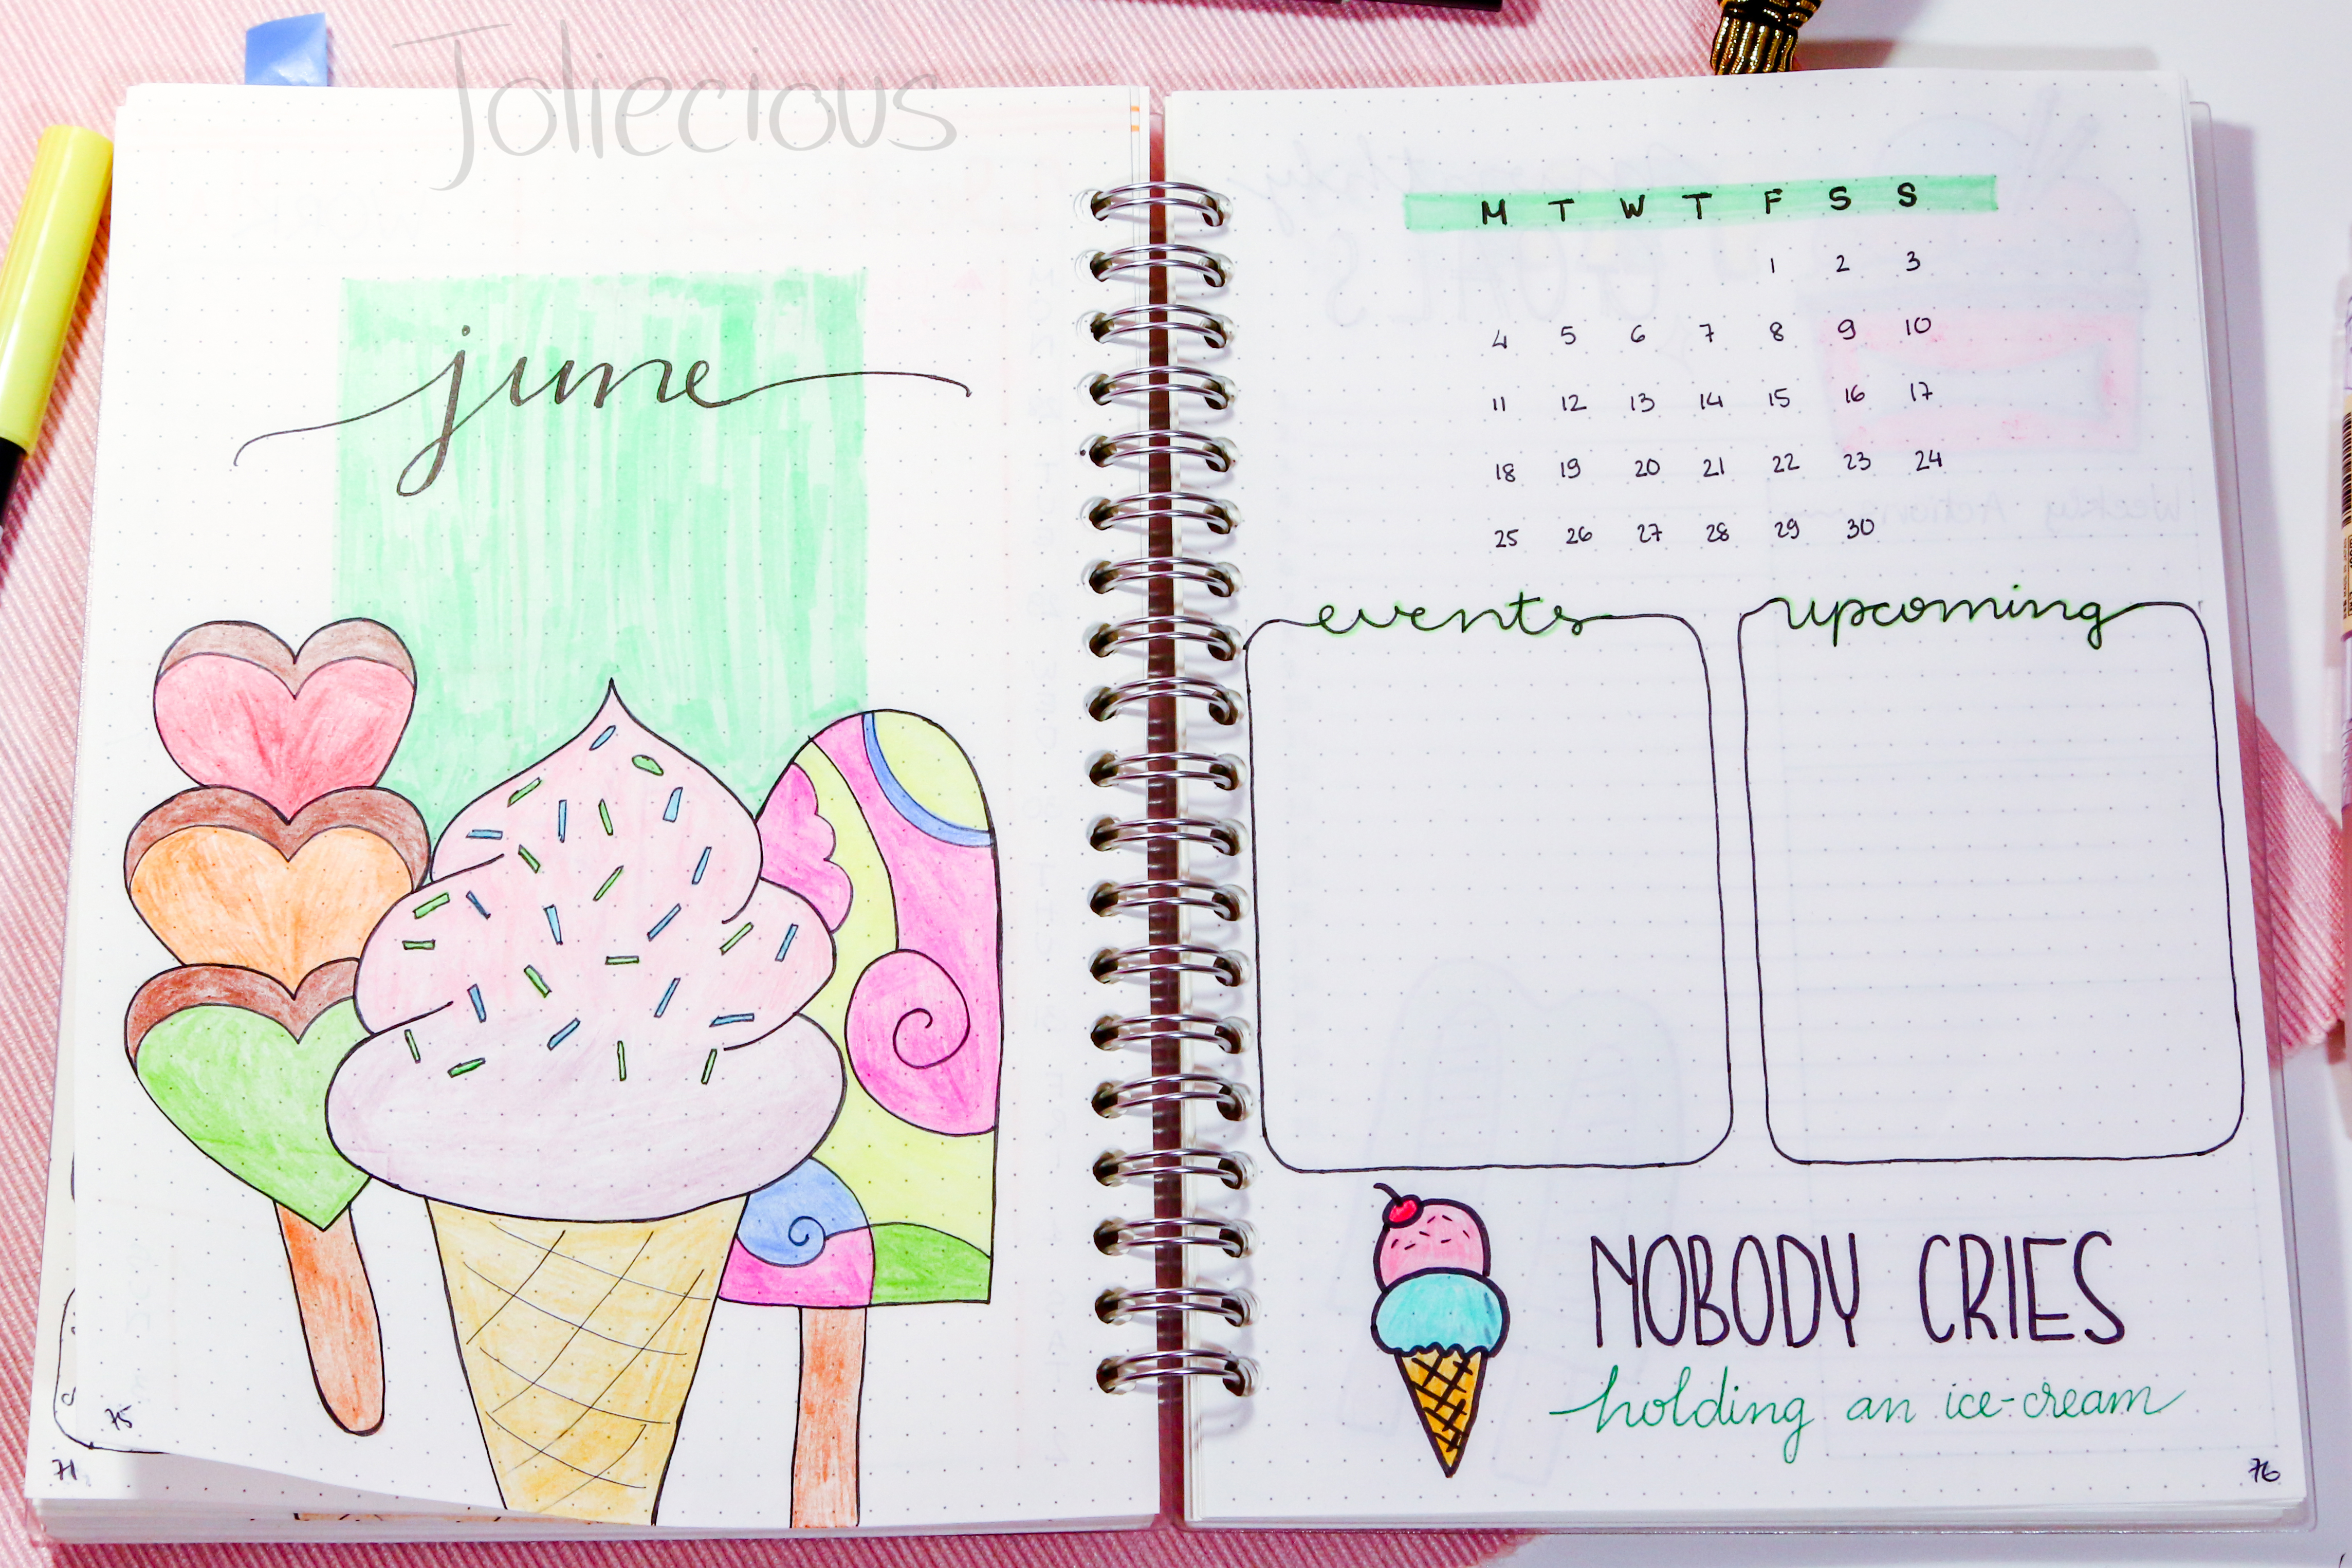 Joliecious
june
75
71
M T W T F S S
1 2 3
4 5 6 7 8 9 10
11 12 13 14 15 16 17
18 19 20 21 22 23 24
25 26 27 28 29 30
events
upcoming
NOBODY CRIES
holding an ice-cream
76